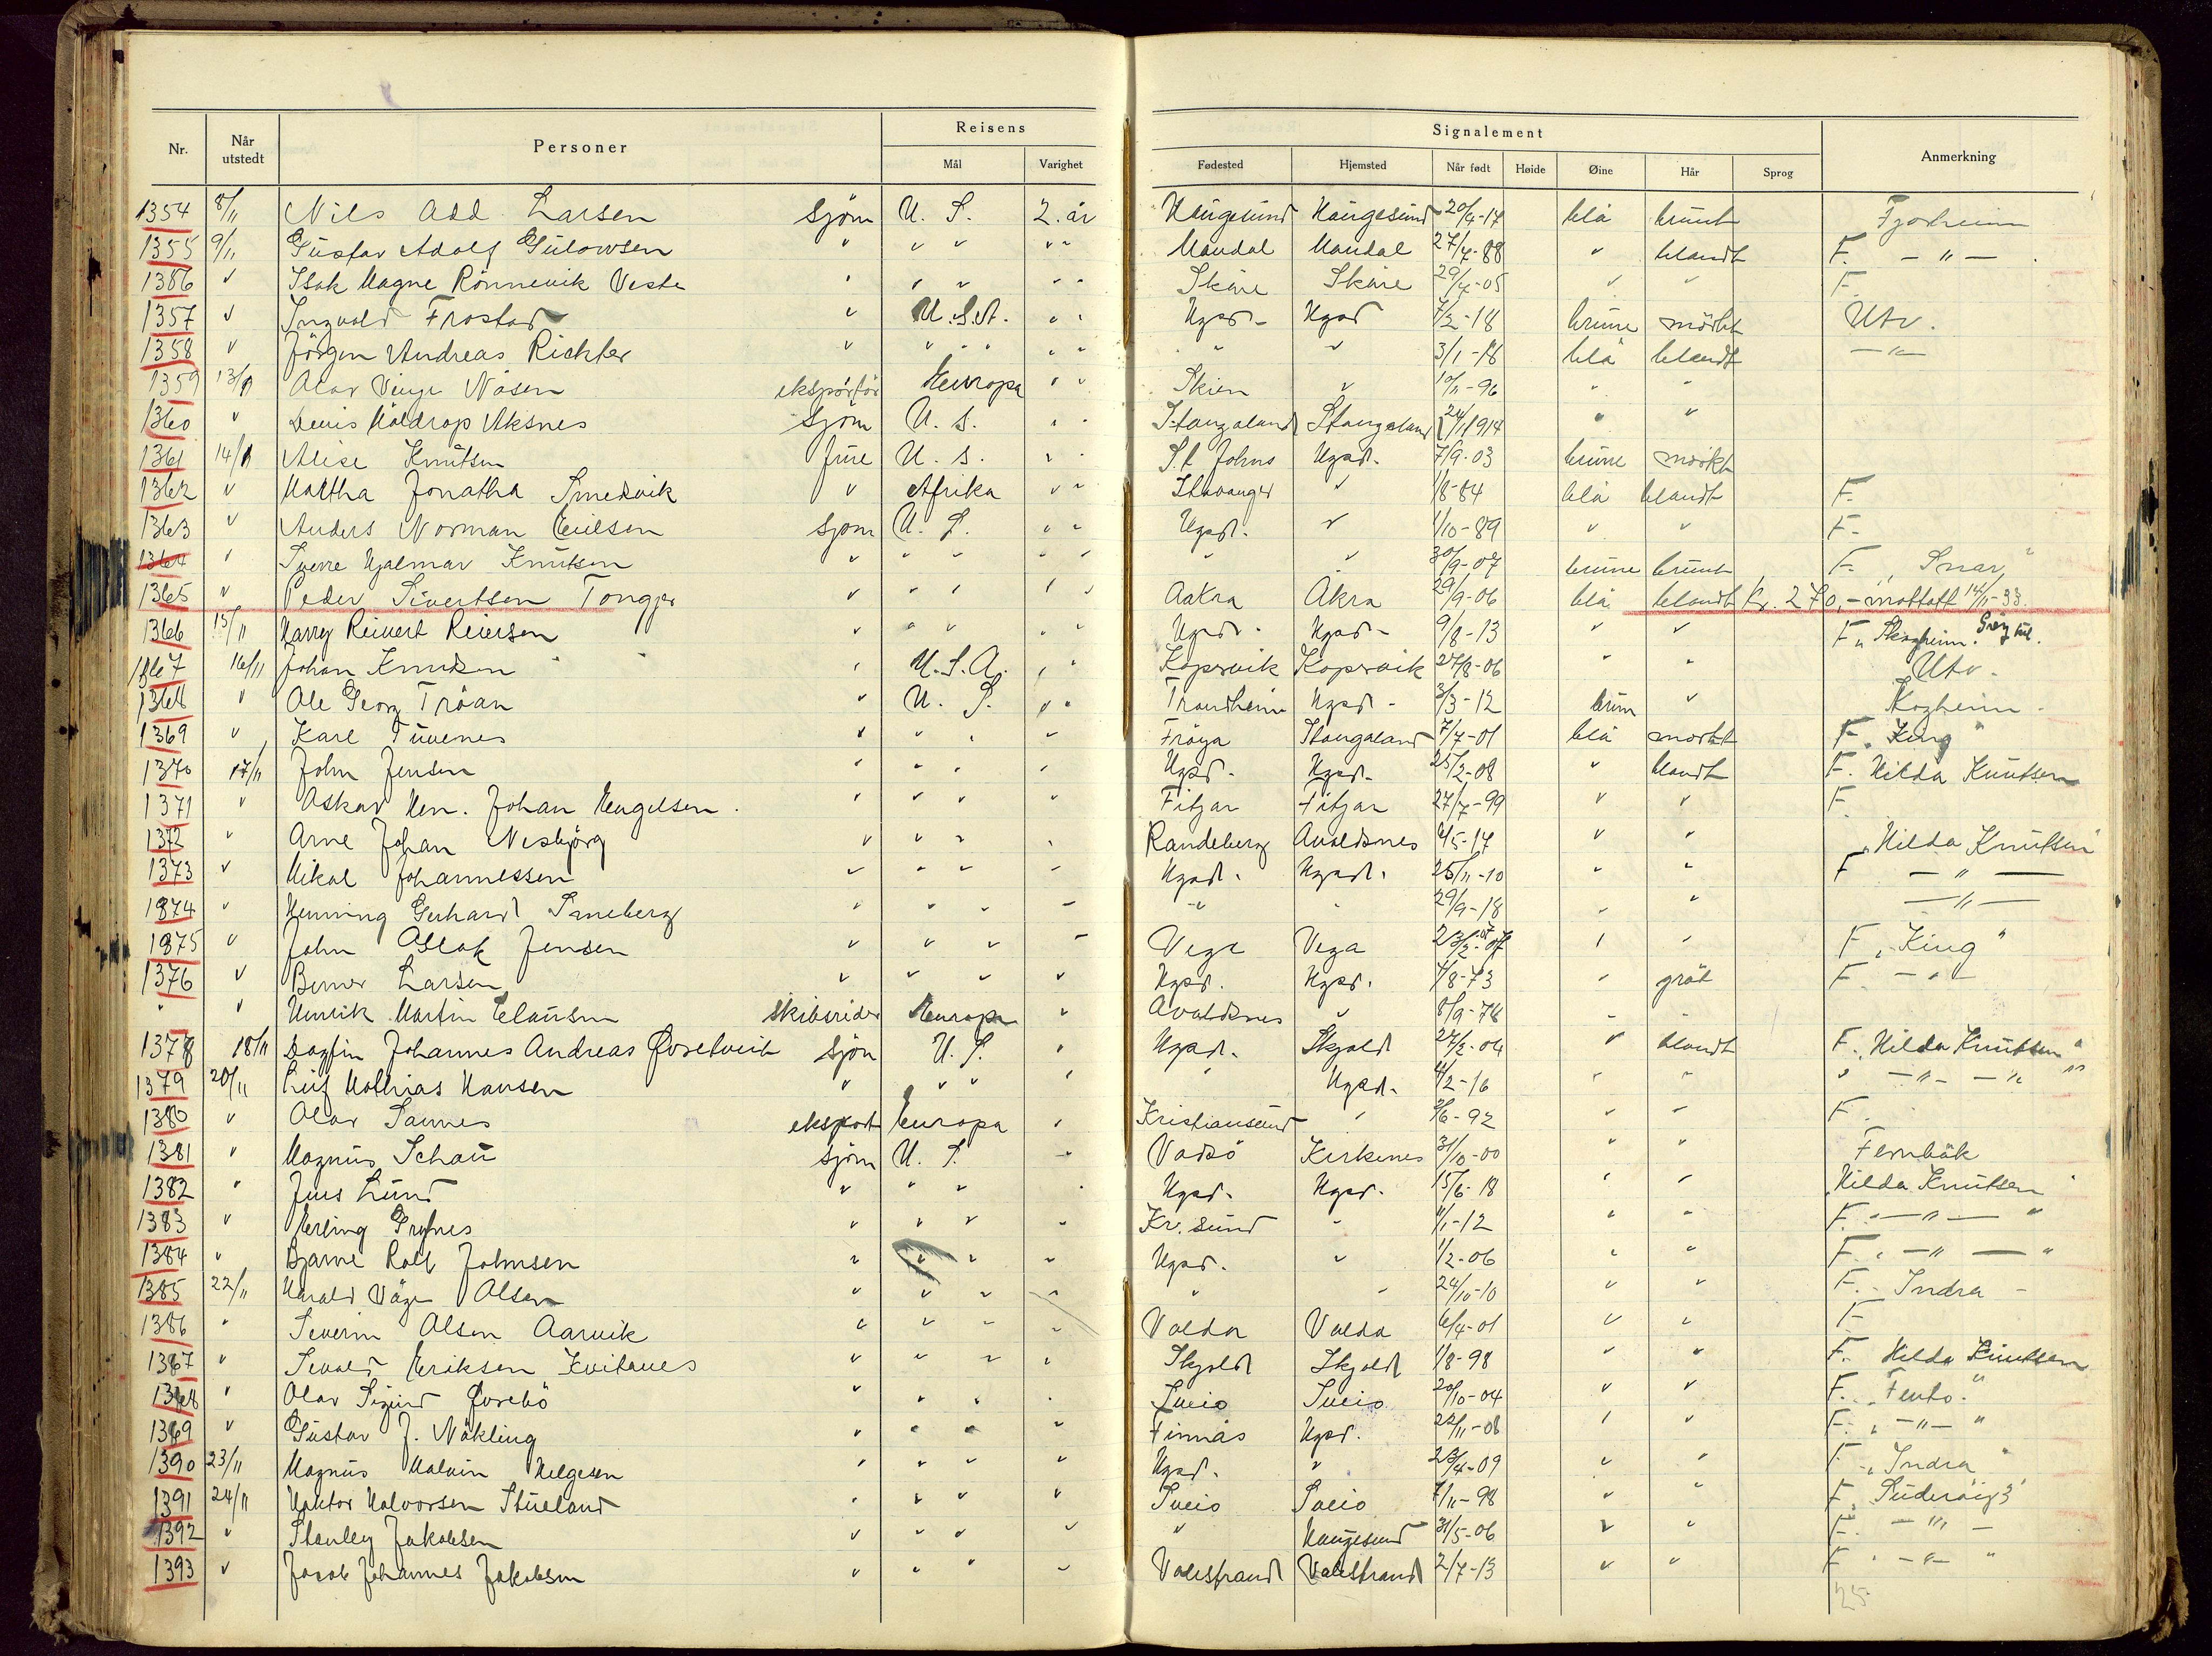 Nr. Når utstedt Personer Reisens Mål Varighet Signalement Fødested Hjemsted Når født Høide Øine Hår Sprog Anmerkning
1354 8/11 Nils Add. Larsen sjøm U. S. 2. år Haugesund Haugesund 20/4-17 blå brunt Fjordheim
1355 9/11 Gustav Adolf Gulowsen " " " " " Mandal Mandal 27/7-88 " blandt F. - " -
1386 " Isak Magne Rönnevik Veste " " " " " Skåre Skåre 29/4-05 " " F.
1357 " Ingvald Frostad " U.S.A. " " Hgsd. Hgsd 7/2-18 brune mörkt Utv.
1358 " Jörgen Andreas Richter " " " " " " " 3/1-18 blå blandt - " -
1359 13/11 Olav Vinje Nåsen eksportör Europa " " Skien " 10/11-96 " "
1360 " Denis Haldrop Aksnes sjöm U. S. " " Stangaland Stangaland 24/1 1914 " "
1361 14/11 Alise Knutsen frue U. S. " " S.t Johns Hgsd. 7/9-03 brune mörkt
1362 " Maltha Jonatha Smedvik " Afrika " " Stavanger " 1/8-84 blå blandt F.
1363 " Anders Norman Emilsen sjøm U. S. " " Hgsd. " 1/10-89 " " F.
1364 " Sverre Hjalmar Knutsen " " " " " " " 30/9-07 brune brunt F. "Snar"
1365 " Peder Sivertsen Tonger " " " " " Aakra Åkra 29/9-06 blå blandt Kr. 270,- mottatt 14/11-33.
1366 15/11 Harry Reinert Reiersen " " " " " Hgsd. Hgsd. 9/8-13 " " F. "Skogheim".
1367 16/11 Johan Knudsen " U.S.A. " " Kopervik Kopervik 27/8-06 " " Utv.
1368 " Ole Georg Tråan " U. S. " " Trondheim Hgsd. 3/3-12 brun " Kogheim
1369 " Karl Tuvenes " " " " Fröya Stangaland 7/7-01 blå mørkt F. "King"
1370 17/11 John Jensen " " " " Hgsd. Hgsd. 25/2-08 " blandt F. Hilda Knutsen
1371 " Oskar Hen. Johan Engelsen. " " " " Fitjar Fitjar 27/7-99 " " F.
1372 " Arne Johan Nesbjörg " " " " Randeberg Avaldsnes 4/5-17 " " "Hilda Knutsen"
1373 " Mikal Johannessen " " " " Hgsd. Hgsd. 25/11-10 " " F - " -
1374 " Henning Gerhard Smeberg " " " " " " 29/9-18 " " - " -
1375 " John Aslak Jensen " " " " Vega Vega 23/2-07 " " F "King"
1376 " Berner Larsen " " " " Hgsd. Hgsd. 4/8-73 " gråt F. - " -
" " Henrik Martin Clausen skibsreder Europa " Avaldsnes " 8/9-78 " "
1378 18/11 Dagfin Johannes Andreas Øvretveit sjøm U. S. " Hgsd. Skjold 27/2-04 " blandt F. "Hilda Knutsen"
1379 20/11 Leif Mathias Hansen " " " " " Hgsd. 4/2-16 " " " - " - - " - "
1380 " Olav Sannes eksport Europa " Kristiansund " 3/6-92 " " F.
1381 " Magnus Schau sjøm U. S. " Vadsö Kirkenes 31/10-00 " " Fernbäk
1382 " Jens Lund " " " " Hgsd. Hgsd. 15/6-18 " " "Hilda Knutsen"
1383 " Erling Grytnes " " " " Kr. sund " 1/1-12 " " F. " - " - "
1384 " Bjarne Rolf Johnsen " " " " Hgsd. " 1/2-06 " " F. " - " - "
1385 22/11 Harald Våge Olsen " " " " " " 24/10-10 " " F. - Indra -
1386 " Severin Olsen Aarvik " " " " Valda Valda 6/4-01 " " F
1387 " Sevald Eriksen Kvitanes " " " " Skjold Skjold 1/8-98 " " F. Hilda Knutsen
1388 " Olav Sigurd Øvrebö " " " " Sveio Sveio 20/10-04 " " F. "Fento."
1389 " Gustav J. Nökling " " " " Finnås Hgsd. 22/11-08 " " F. " - " - "
1390 23/11 Magnus Malvin Helgesen " " " " Hgsd. " 23/4-09 " " F. "Indra"
1391 24/11 Haktor Halvorsen Stueland " " " " Sveio Sveio 7/11-98 " " F. "Suderøy 3"
1392 " Stanley Jakobsen " " " " " Haugesund 31/5-06 " " F. - " -
1393 " Jacob Johannes Jakobsen " " " " Valestrand Valestrand 2/7-13 " " F " - " - "
25.